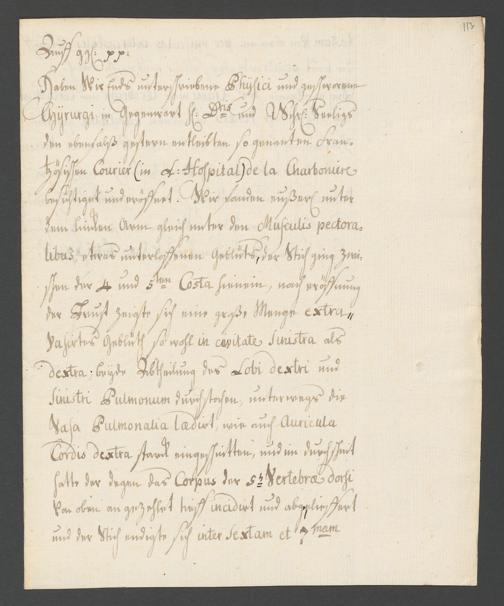 113
Auff ggl: pp:
Haben Wir Ends unterschriebene Physici und geschworene
Chyrurgi in Gegenwart H: Dris und
den ebenfalß gestern entleibten so genanten Fran-
tzösischen Courier (in L: Hospital) de la Charboniere
besichtiget und eröffnet. Wir fanden außer unter
dem lincken Arm gleich unter den Musculis pectora-
libus, etwas unterloffenen Geblüts, der Stich ging zwi-
schen der 4 und 5ten Costa hinein, nach eröffnung
der Brust zeigte sich eine große Menge extra-
vasirtes Geblüth so wohl in cavitate sinistra als
dextra: beyde Abtheilung des Lobi dextri und
sinistri Pulmonum durchstochen, unterwegs die
Vasa Pulmonalia lædirt, wie auch Auricula
Cordis dextra starck eingeschnitten, und im durchschnit
hatte der degen das Corpus der 5t Vertebræ dorsi
von oben an gezehlet tieff incidirt und
und der Stich endigte sich inter sextam et 7mam